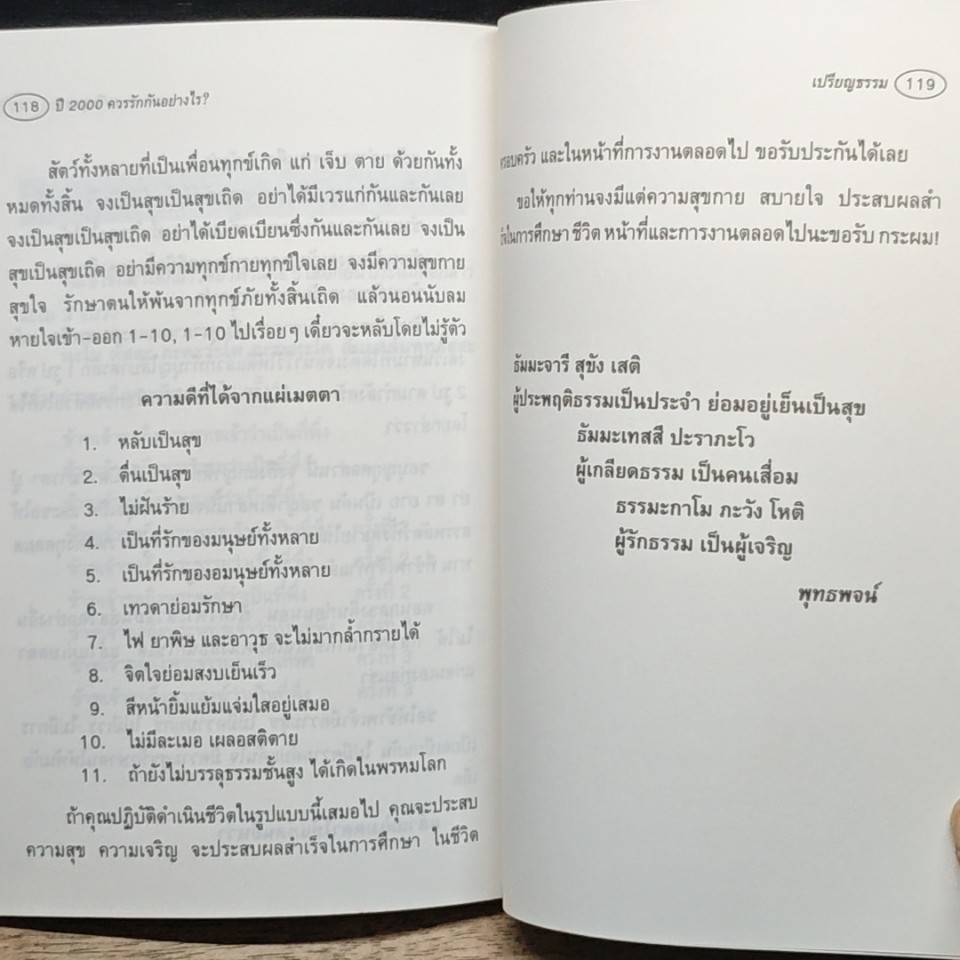 118 ปี 2000 ควรรักกันอย่างไร?
สัตว์ทั้งหลายที่เป็นเพื่อนทุกข์เกิด แก่ เจ็บ ตาย ด้วยกันทั้ง
หมดทั้งสิ้น จงเป็นสุขเป็นสุขเถิด อย่าได้มีเวรแก่กันและกันเลย
จงเป็นสุขเป็นสุขเถิด อย่าได้เบียดเบียนซึ่งกันและกันเลย จงเป็น
สุขเป็นสุขเถิด อย่ามีความทุกข์กายทุกข์ใจเลย จงมีความสุขกาย
สุขใจ รักษาตนให้พ้นจากทุกข์ภัยทั้งสิ้นเถิด แล้วนอนนับลม
หายใจเข้า-ออก 1-10, 1-10 ไปเรื่อยๆ เดี๋ยวจะหลับโดยไม่รู้ตัว
ความดีที่ได้จากแผ่เมตตา
1. หลับเป็นสุข
2. ตื่นเป็นสุข
3. ไม่ฝันร้าย
4. เป็นที่รักของมนุษย์ทั้งหลาย
5. เป็นที่รักของอมนุษย์ทั้งหลาย
6. เทวดาย่อมรักษา
7. ไฟ ยาพิษ และอาวุธ จะไม่มากล้ำกรายได้
8. จิตใจย่อมสงบเย็นเร็ว
9. สีหน้ายิ้มแย้มแจ่มใสอยู่เสมอ
10. ไม่มีละเมอ เผลอสติตาย
11. ถ้ายังไม่บรรลุธรรมชั้นสูง ได้เกิดในพรหมโลก
ถ้าคุณปฏิบัติดำเนินชีวิตในรูปแบบนี้เสมอไป คุณจะประสบ
ความสุข ความเจริญ จะประสบผลสำเร็จในการศึกษา ในชีวิต
เปรียญธรรม 119
ครอบครัว และในหน้าที่การงานตลอดไป ขอรับประกันได้เลย
ขอให้ทุกท่านจงมีแต่ความสุขกาย สบายใจ ประสบผลสำ
เร็จในการศึกษา ชีวิต หน้าที่และการงานตลอดไปนะขอรับ กระผม!
ธัมมะจารี สุขัง เสติ
ผู้ประพฤติธรรมเป็นประจำ ย่อมอยู่เย็นเป็นสุข
ธัมมะเทสสี ปะราภะโว
ผู้เกลียดธรรม เป็นคนเสื่อม
ธรรมะกาโม ภะวัง โหติ
ผู้รักธรรม เป็นผู้เจริญ
พุทธพจน์